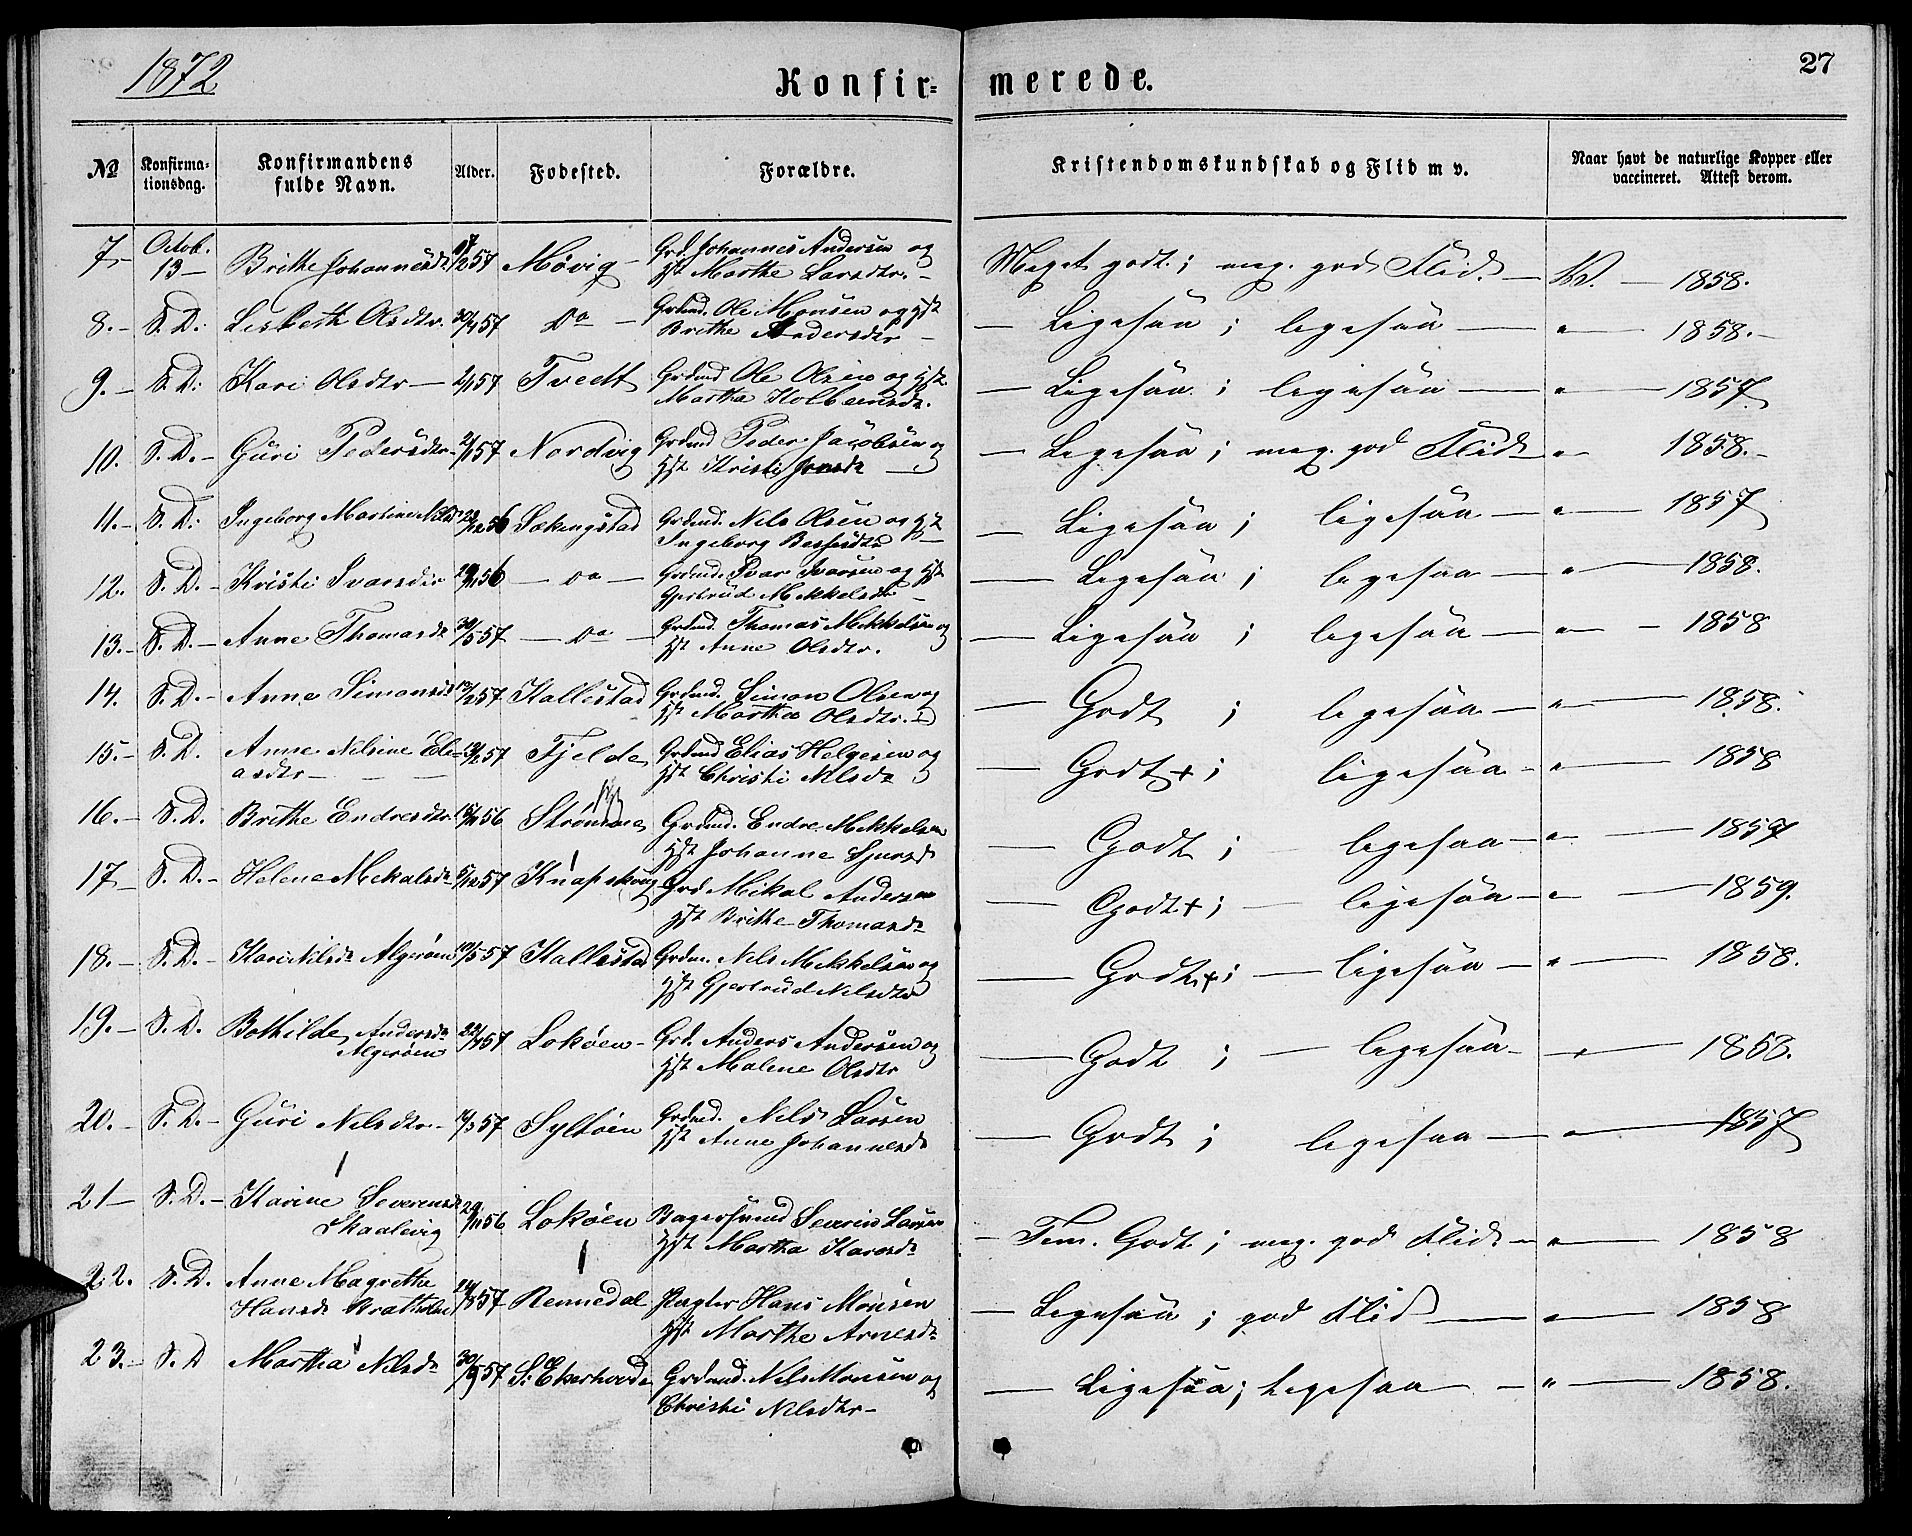 1872
Konfir=
merede.
27
No
Konfirma-
tionsdag.
Konfirmandens
fulde Navn.
Alder.
Fødested.
Forældre.
Kristendomskundskab og Flid m v.
Naar havt de naturlige Kopper eller
vaccineret. Attest derom.
7- Octob. 13- Brithe Johannesdr 57 Møvig- Grd. Johannes Andersen og
Hst Marthe Larsdtr.-
Meget godt; meg. god Flid.- W.- 1858.
8.- S. D. Lisbeth Olsdtr. 57 Do - Grdmd. Ole Monsen og Hst
Brithe Andersdtr -
- Ligesaa; ligesaa - " - 1858.-
9.- S. D: Kari Olsdtr- 2/1 57 Tvedt Grdmd Ole Olsen og Hst
Marthe Kolbeensd.
- Ligesaa; ligesaa - " - 1857
10. S. D.- Guri Pedersdtr- 57 Nordvig Grdmd Peder Jacobsen og
Hst Kristi Jonsdr
- Ligesaa; meg. god Flid " - 1858.-
11.- S. D: Ingeborg Martine Nilsd 56 Sekkingstad Grdmd. Nils Olsen og Hst
Ingeborg
- Ligesaa; ligesaa - " - 1857
12. S. D.- Kristi Ivarsdtr 56 - Do - Grdmd. Ivar Ivarsen og Hst
Gjertrud Mikkelsdr -
- Ligesaa; ligesaa - " - 1858.
13.- S. D.- Anne Thomasdr 30/5 57 - Do - Grdmd. Thomas Mikkelsen og
Hst Anne Olsdtr.
- Ligesaa; ligesaa - " - 1858
14. S. D.- Anna Simonsd 57 Kallestad Grdmd. Simon Olsen og
Hst Martha Olsdtr.
- Godt; ligesaa - " - 1858.
15.- S. D. Anne Nilsine Eli-
asdtr - 57 Fjelde Grdmd Elias Helgesen og
Hst Christi Nilsdr
- Godt+; ligesaa - " - 1858
16.- S. D. Brithe Endresdtr. 56 Strømme Grdmd. Endre Mikkelsen
Hst Johanne Sjursd
- Godt; ligesaa - " - 1857
17- S. D.- Helene Mikalsdr 57 Knapskog Grd Mikal Andersen
Hst Brithe Thomasdr
- Godt+; - ligesaa - " - 1859.
18.- S. D.- Kari Nilsdr Algerøen 10/5 57 Kallestad Grdm. Nils Mikkelsen og
Hst Gjertrud Nilsdtr
- Godt+; - ligesaa - " - 1858.
19.- S. D. Bothilde Andersdr
Algerøen 57 Lokøen- Grd. Anders Andersen og
Hst Malene Olsdtr
- Godt; - ligesaa - " - 1858.
20.- S. D.- Guri Nilsdtr- 57 Syltøen Grdmd. Nils Larsen
Hst Anne Johannesd
- Godt; ligesaa - " - 1857
21- S. D.- Karine Severinsd
Skaalevig 56 Lokøen Bagersvend Severin Larsen
Hst Martha
- Tem. Godt; meg. god Flid - " - 1858
22. S. D. Anne Magrethe
Hansd 57 Rennedal Pagter Hans Monsen
Hst Marthe Arnesdr
- Ligesaa; god Flid - " - 1858
23.- S. D Martha Nilsdr 57 S. Ekerhovde Grdmd. Nils Monsen og
Christi Nilsdtr-
- Ligesaa; ligesaa - " - 1858.